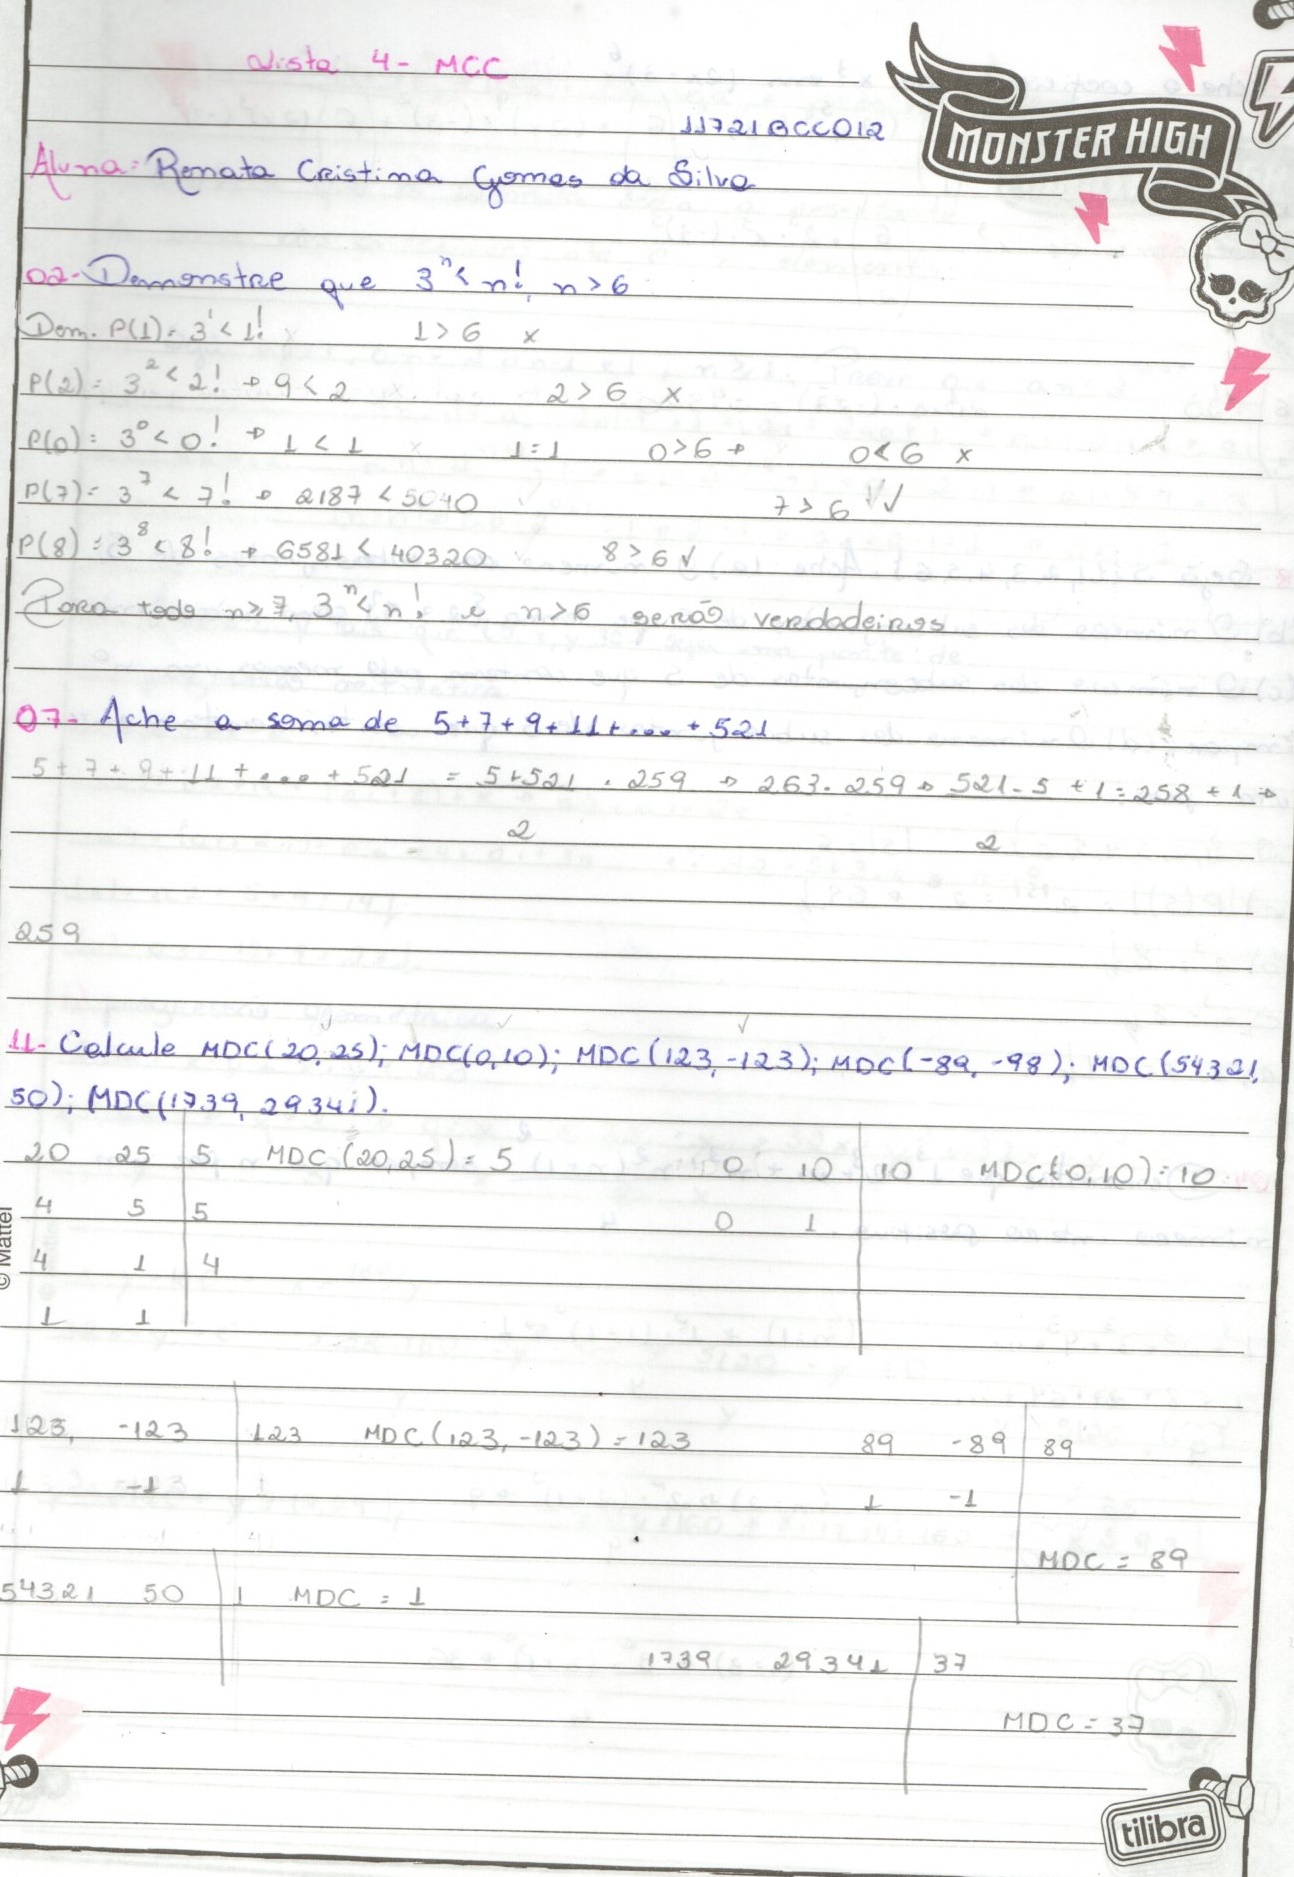 Lista 4 - MCC
11721BCC012
MONSTER HIGH
Aluna: Renata Cristina Gomes da Silva
02- Demonstre que 3^n < n!, n > 6
Dem. P(1) = 3^1 < 1! 1 > 6 x
P(2) = 3^2 < 2! → 9 < 2 2 > 6 x
P(0) = 3^0 < 0! → 1 < 1 1 = 1 0 > 6 → 0 < 6 x
P(7) = 3^7 < 7! → 2187 < 5040 7 > 6 √√
P(8) = 3^8 < 8! → 6581 < 40320 8 > 6 √
Para todo n ≥ 7, 3^n < n! e n > 6 serão verdadeiros
07- Ache a soma de 5 + 7 + 9 + 11 + ... + 521
5 + 7 + 9 + 11 + ... + 521 = 5 + 521 . 259 → 263 . 259 → 521 - 5 + 1 = 258 + 1 →
2 2
259
11- Calcule MDC(20, 25); MDC(0, 10); MDC(123, -123); MDC(-89, -98); MDC(54321,
50); MDC(1739, 29341).
20 25 | 5 MDC (20,25) = 5 0 10 | 10 MDC(0,10) = 10
4 5 | 5 0 1
4 1 | 4
1 1
123, -123 | 123 MDC(123, -123) = 123 89 -89 | 89
1 -1 1 -1
MDC = 89
54321 50 | 1 MDC = 1
1739 29341 | 37
MDC = 37
© Mattel
tilibra